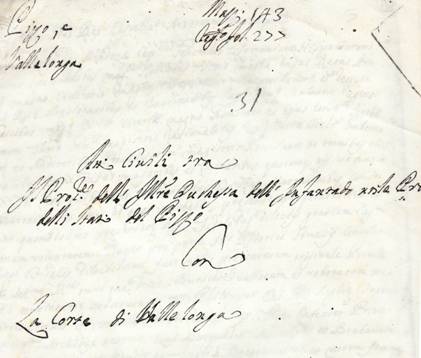 Pizzo, e
Vallelonga
Mazzo 143
fol. 277
31
Atti Civili tra
Il Proc.re dell' Ill.re Duchessa dell' Infantado nella
delli Stati del Pizzo
Con
La Corte di Vallelonga